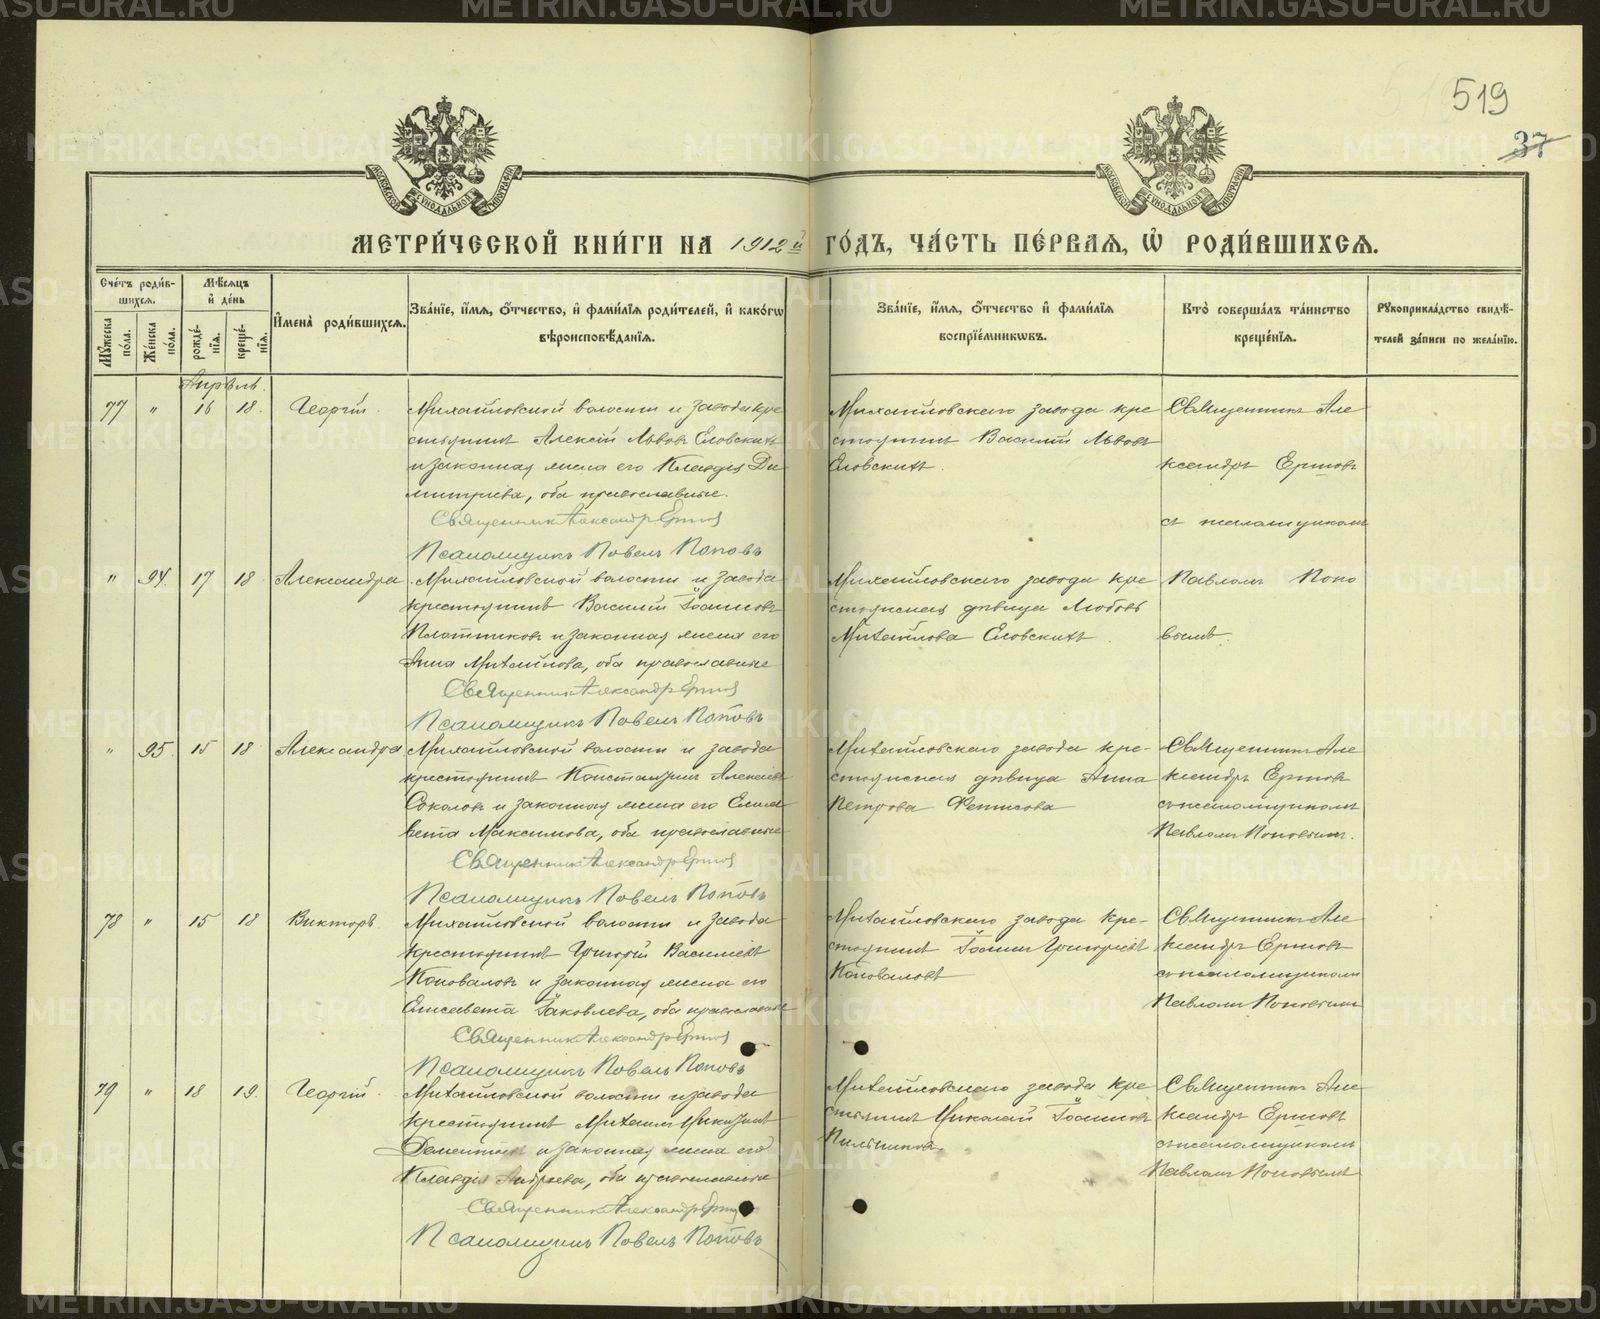 519
37
МЕТРИ́ЧЕСКОЙ КНИ́ГИ НА 1912й ГО́ДЪ, ЧА́СТЬ ПЕ́РВАЯ, Ѡ РОДИ́ВШИХСЯ.
Сче́тъ роди́в-
шихся.
Мꙋ́жеска по́ла.
Же́нска по́ла.
Мѣ́сяцъ
и де́нь
рожде́-
нїя.
креще́-
нїя.
Имена̀ роди́вшихся.
Зва́нїе, и́мя, о́тчество, и фами́лїя роди́телей, и како́гѡ
вѣроисповѣ́данїя.
Зва́нїе, и́мя, о́тчество и фами́лїя
воспрїе́мникѡвъ.
Кто̀ соверша́лъ та́инство
креще́нїя.
Рꙋкоприкла́дство свидѣ́-
телей за́писи по жела́нїю.
Апрѣль.
77 " 16 18. Георгій.
Михайловской волости и завода кре
стьянинъ Алексій Львовъ Еловскихъ
и законная жена его Клавдія Ди
митріева, оба православные.
Священникъ Александръ Ершов
Псаломщикъ Павелъ Поповъ
Михайловскаго завода кре
стьянинъ Василій Львовъ
Еловскихъ.
Священникъ Але
ксандръ Ершовъ
съ псаломщикомъ
" 94. 17 18. Александра
Михайловской волости и завода
крестьянинъ Василій Іоанновъ
Плотниковъ и законная жена его
Анна Михайлова, оба православные
Священникъ Александръ Ершов
Псаломщикъ Павелъ Поповъ
Михайловскаго завода кре
стьянская дѣвица Любовь
Михайлова Еловскихъ.
Павломъ Попо
вымъ.
" 95. 15 18. Александра
Михайловской волости и завода
крестьянинъ Константинъ Алексіевъ
Соколовъ и законная жена его Елиса
вета Максимова, оба православные
Священникъ Александръ Ершов
Псаломщикъ Павелъ Поповъ
Михайловскаго завода кре-
стьянская дѣвица Анна
Петрова Фетисова
Священникъ Але
ксандръ Ершовъ
съ псаломщикомъ
Павломъ Поповымъ.
78 " 15 18 Викторъ.
Михайловской волости и завода
крестьянинъ Григорій Василіевъ
Коноваловъ и законная жена его
Елисавета Іаковлева, оба православные
Священникъ Александръ Ершов
Псаломщикъ Павелъ Поповъ
Михайловскаго завода кре-
стьянинъ Іоаннъ Григоріевъ
Коноваловъ
Священникъ Але
ксандръ Ершовъ
съ псаломщикомъ
Павломъ Поповымъ
79 " 18 19. Георгій.
Михайловской волости и завода
крестьянинъ Михаилъ
Дементьевъ и законная жена его
Клавдія Андреева, оба православные
Священникъ Александръ Ершов
Псаломщикъ Павелъ Поповъ
Михайловскаго завода кре
стьянинъ Николай Іоанновъ
Священникъ Але
ксандръ Ершовъ
съ псаломщикомъ
Павломъ Поповымъ
METRIKI.GASO-URAL.RU